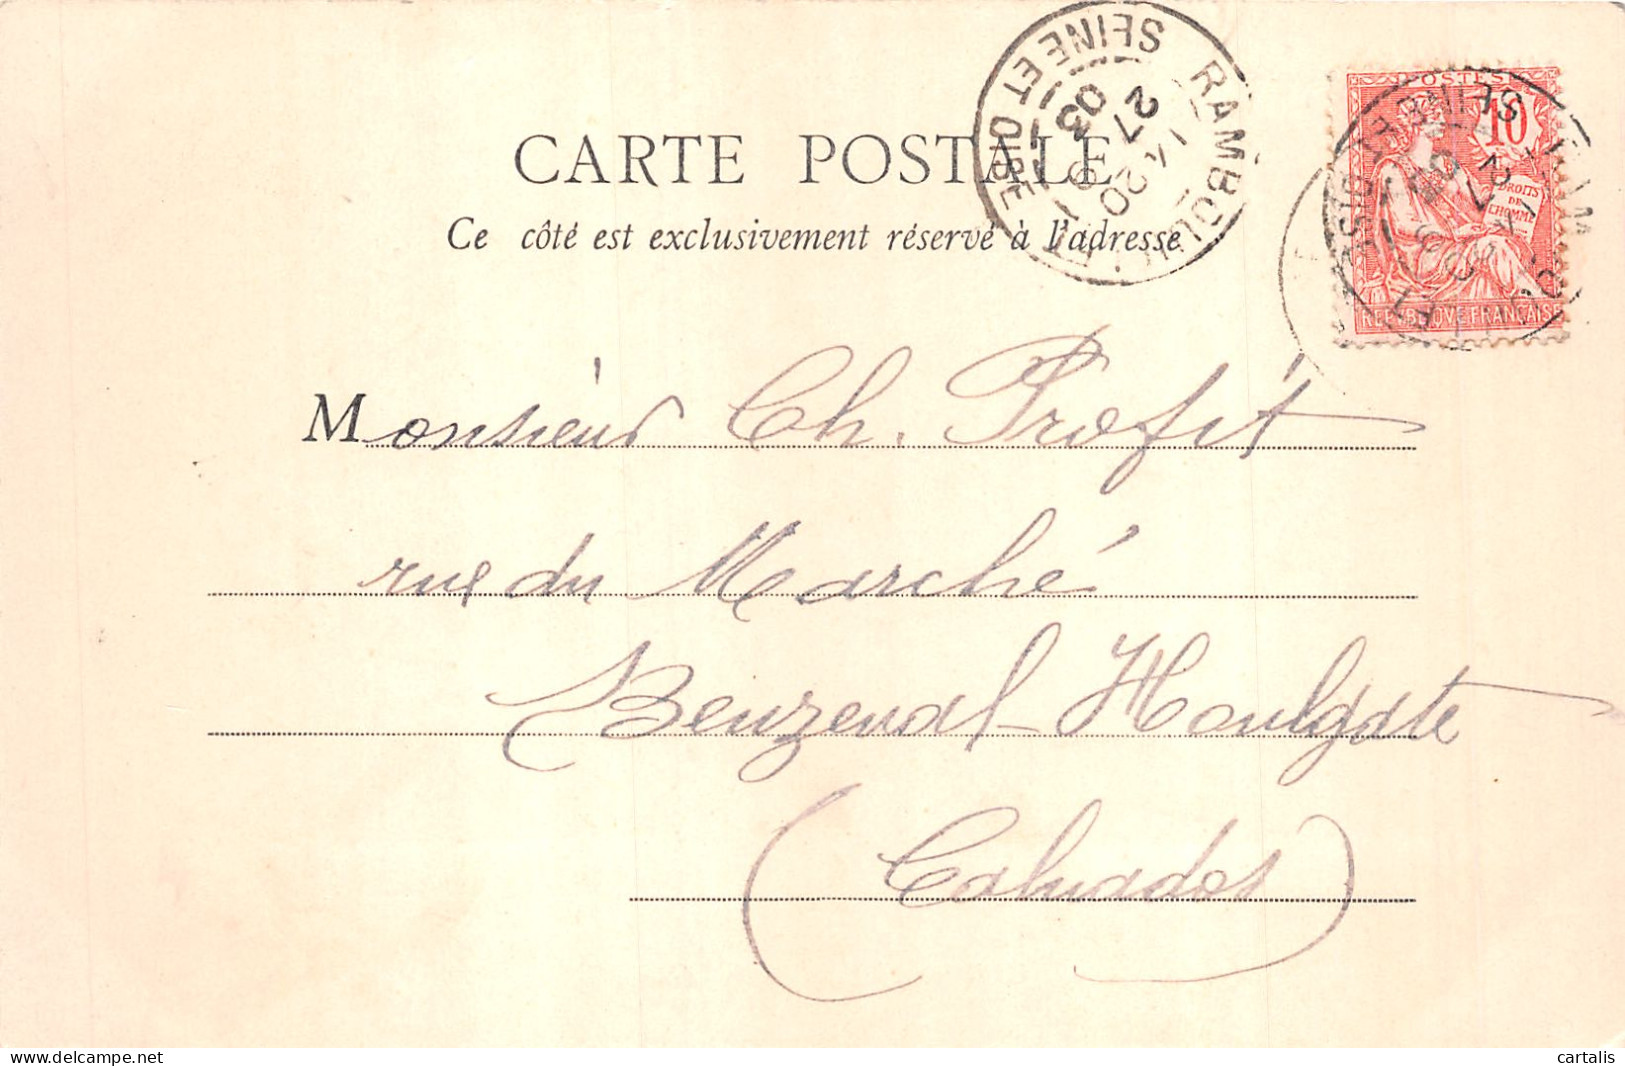 CARTE POSTALE
Ce côté est exclusivement réservé à l'adresse
RAMBOUILLET
SEINE ET OISE
27
03
POSTES
10
DROITS
DE
L'HOMME
REPUBLIQUE FRANÇAISE
Monsieur Ch. Profit
rue du Marché
Beuzeval-Houlgate
(Calvados)
delcampe.net
cartalis